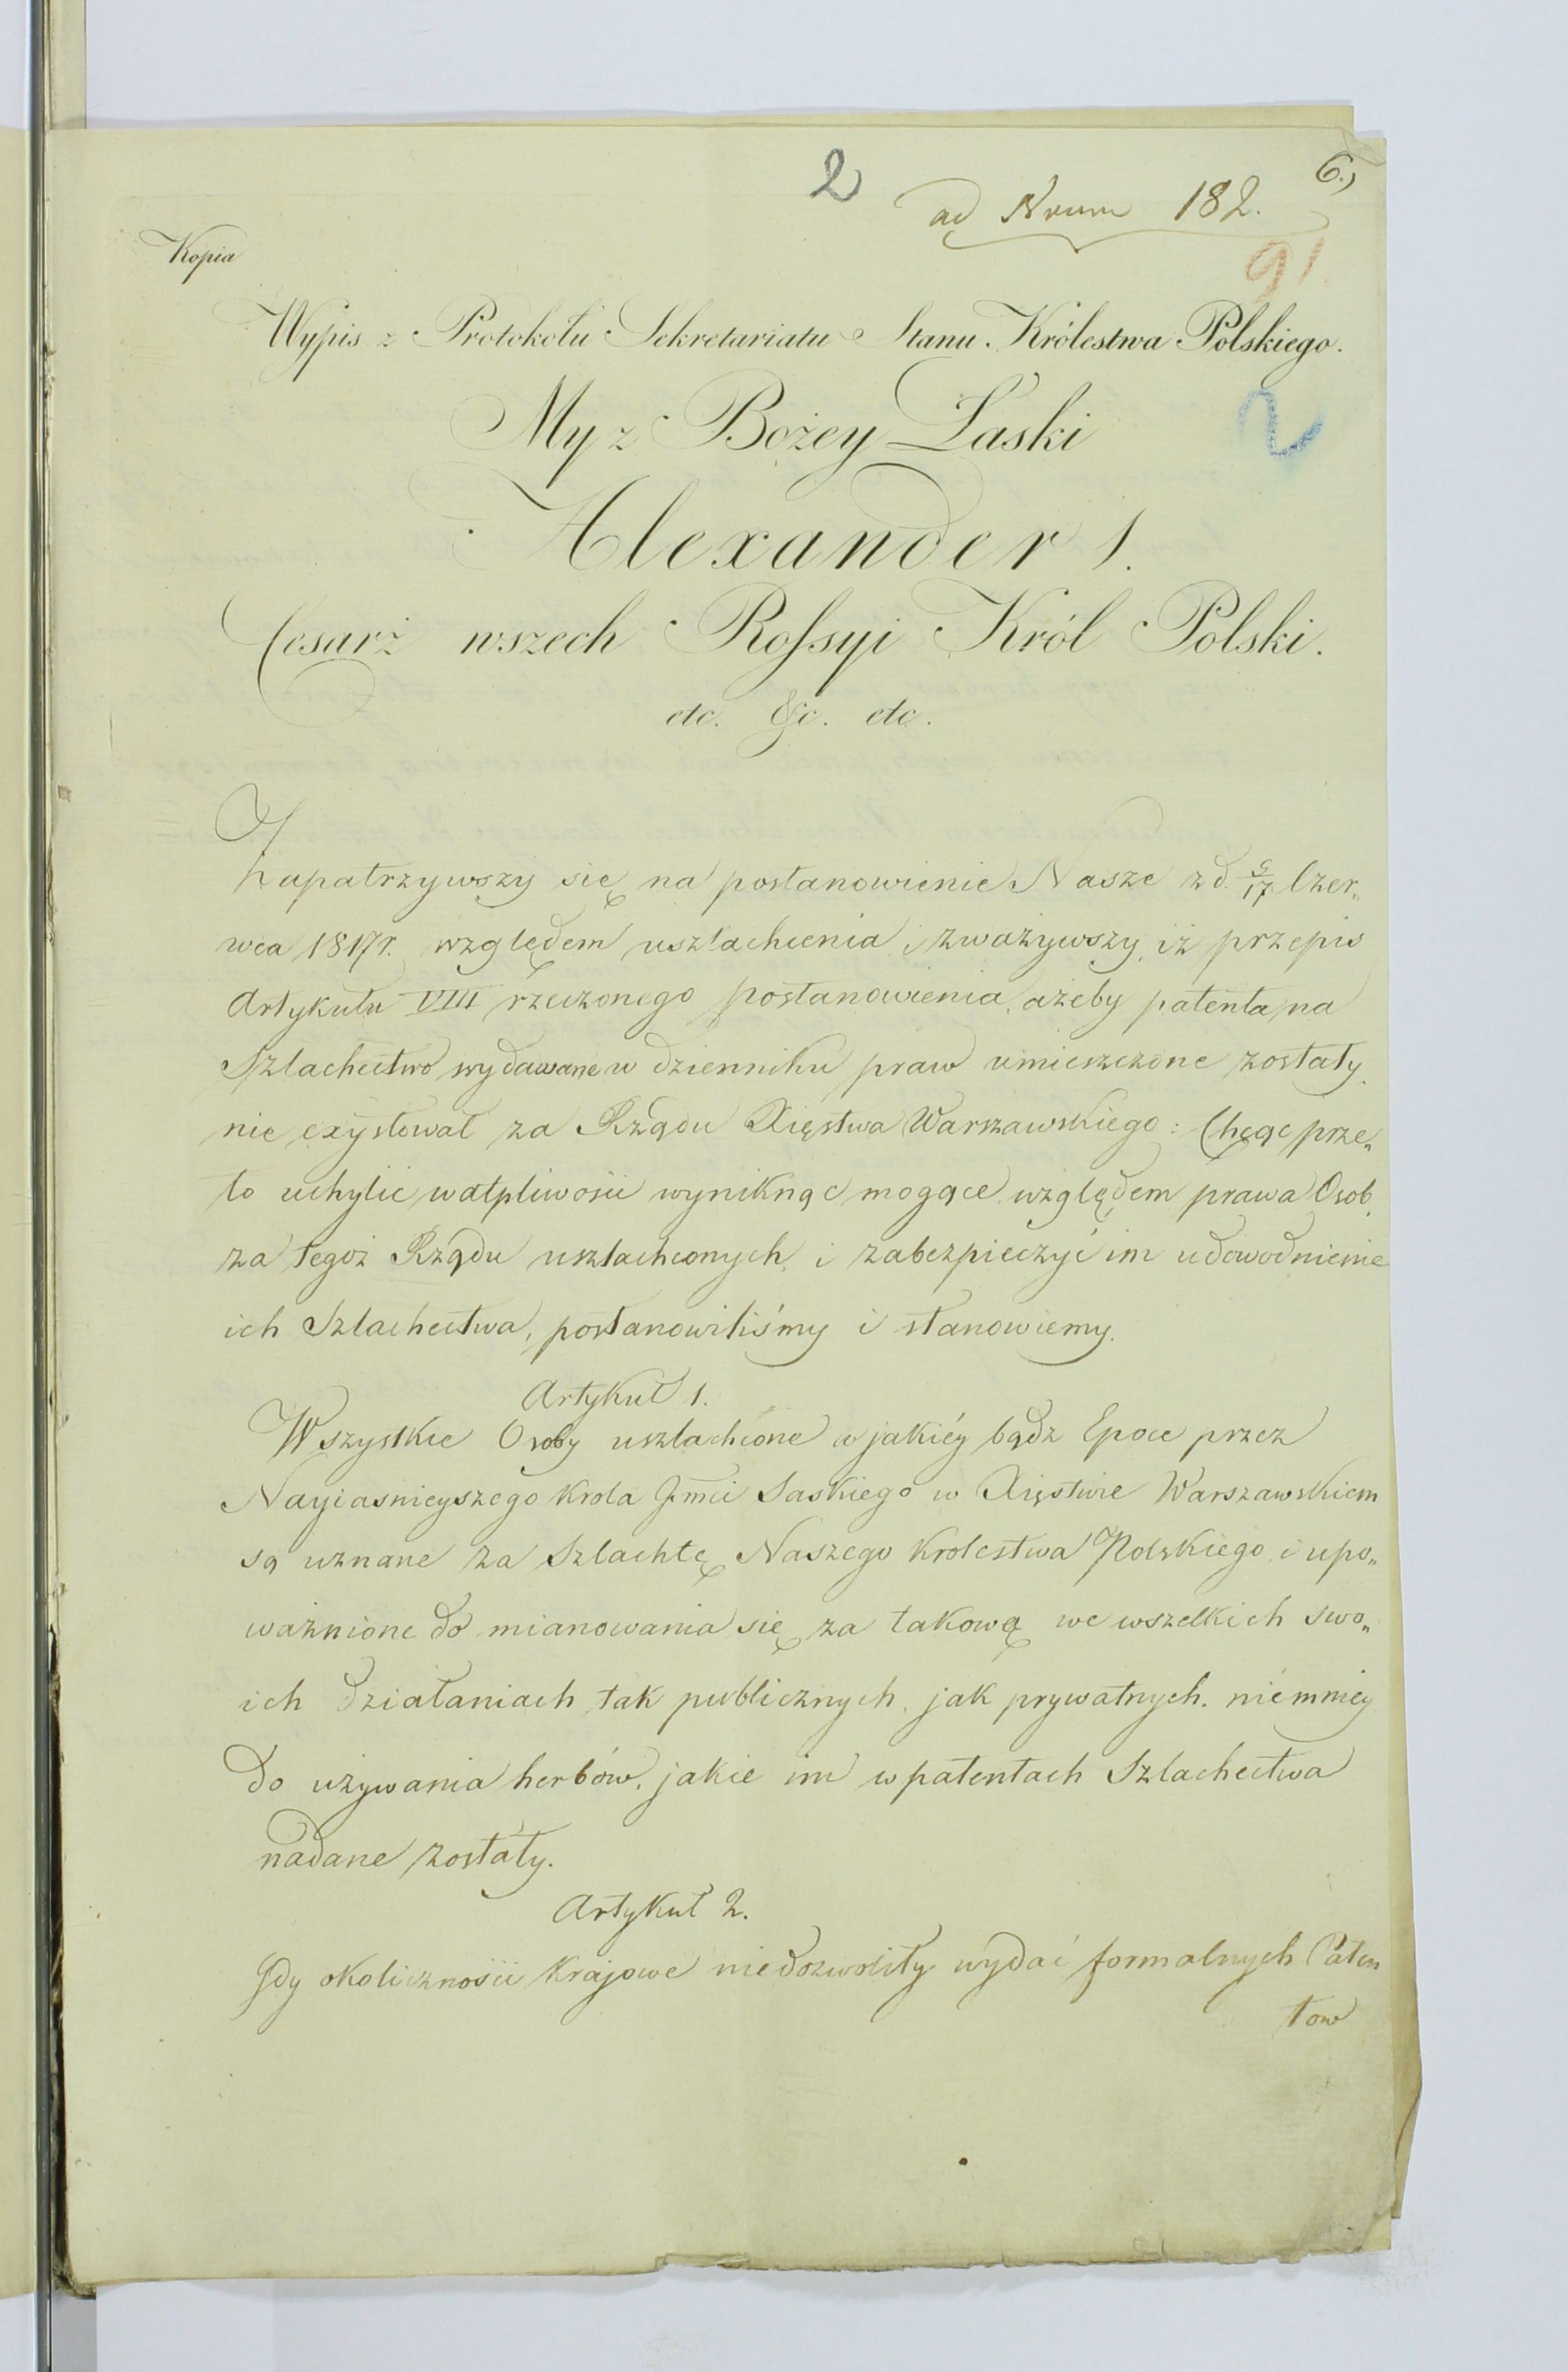 2
6.)
ad Nrum 182.
91
Kopia
Wypis z Protokołu Sekretariatu Stanu Królestwa Polskiego.
My z Bożey Łaski
2
Alexander 1.
Cesarż wszech Rossyi Król Polski.
etc. &c. etc.
Zapatrzywszy się na postanowienie Nasze z d. 5/17 Czer„
wca 1817r. względem uszlachcenia i zważywszy, iż przepis
Artykułu VIII rzeczonego postanowienia, ażeby patenta na
Szlachectwo wydawane w dzienniku praw umieszczone zostały,
nie exystował za Rządu Xięstwa Warszawskiego: Chcąc prze„
to uchylić wątpliwości wyniknąć mogące względem prawa Osob,
za tegoż Rządu uszlachconych, i zabezpieczyć im udowodnienie
ich Szlachectwa, postanowiliśmy i stanowiemy.
Artykuł 1.
Wszystkie Osoby uszlachcone w jakiéy bądz Epoce przez
Nayiasnieyszego Krola Jmci Saskiego w Xięstwie Warszawskiem
są uznane za Szlachtę Naszego Krolestwa Polskiego i upo„
ważnione do mianowania się za takową we wszelkich swo„
ich działaniach tak publicznych, jak prywatnych. niemniey
do używania herbów, jakie im w patentach Szlachectwa
nadane zostały.
Artykuł 2.
Gdy okoliczności krajowe niedozwoliły wydać formalnych Paten
tow